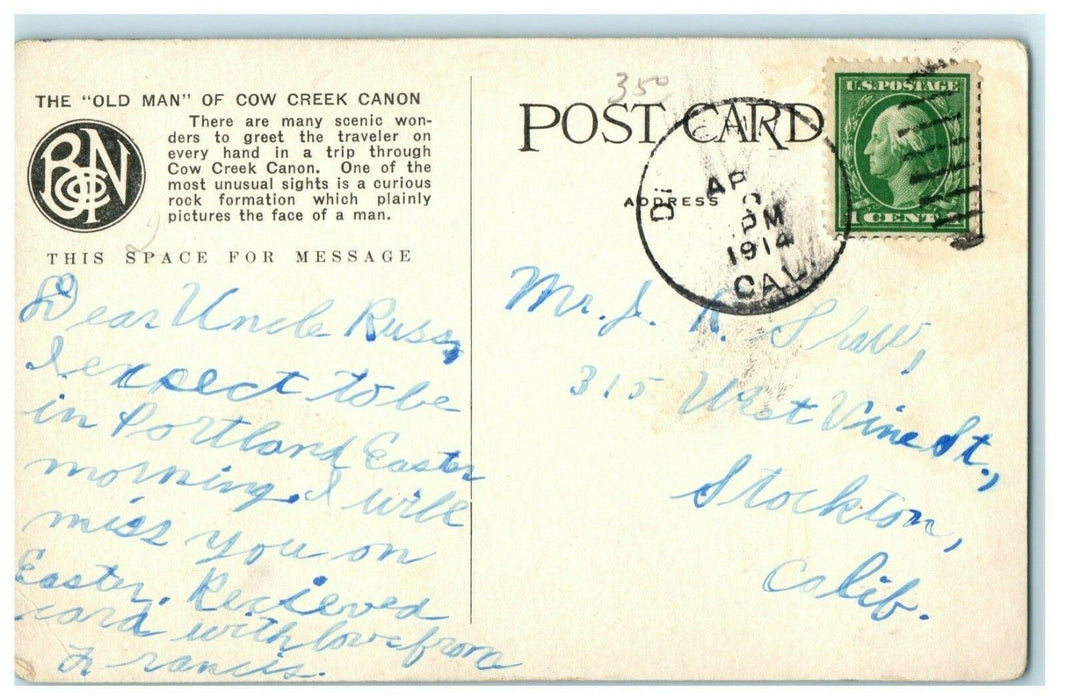 THE "OLD MAN" OF COW CREEK CANON
There are many scenic won-
ders to greet the traveler on
every hand in a trip through
Cow Creek Canon. One of the
most unusual sights is a curious
rock formation which plainly
pictures the face of a man.
THIS SPACE FOR MESSAGE
Dear Uncle Russ,
I expect to be
in Portland Easter
morning. I will
miss you on
Easter. Recieved
card with love from
Francis.
350
POST CARD
ADDRESS
U.S. POSTAGE
1 CENT 1
AP
PM
1914
CAL.
Mr. J. R. Shaw,
315 West Vine St.,
Stockton,
Calif.